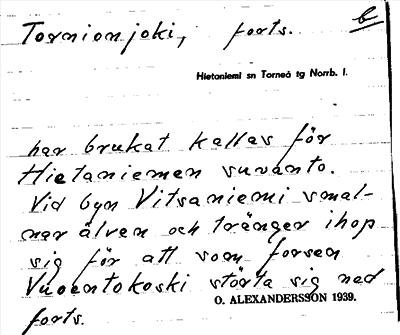 Tornionjoki, forts. b
Hietaniemi sn Torneå tg Norrb. l.
har brukat kallas för
Hietaniemen suvanto.
Vid byn Vitsaniemi smal-
nar älven och tränger ihop
sig för att som forsen
Vuoentokoski störta sig ned
O. ALEXANDERSSON 1939.
forts.